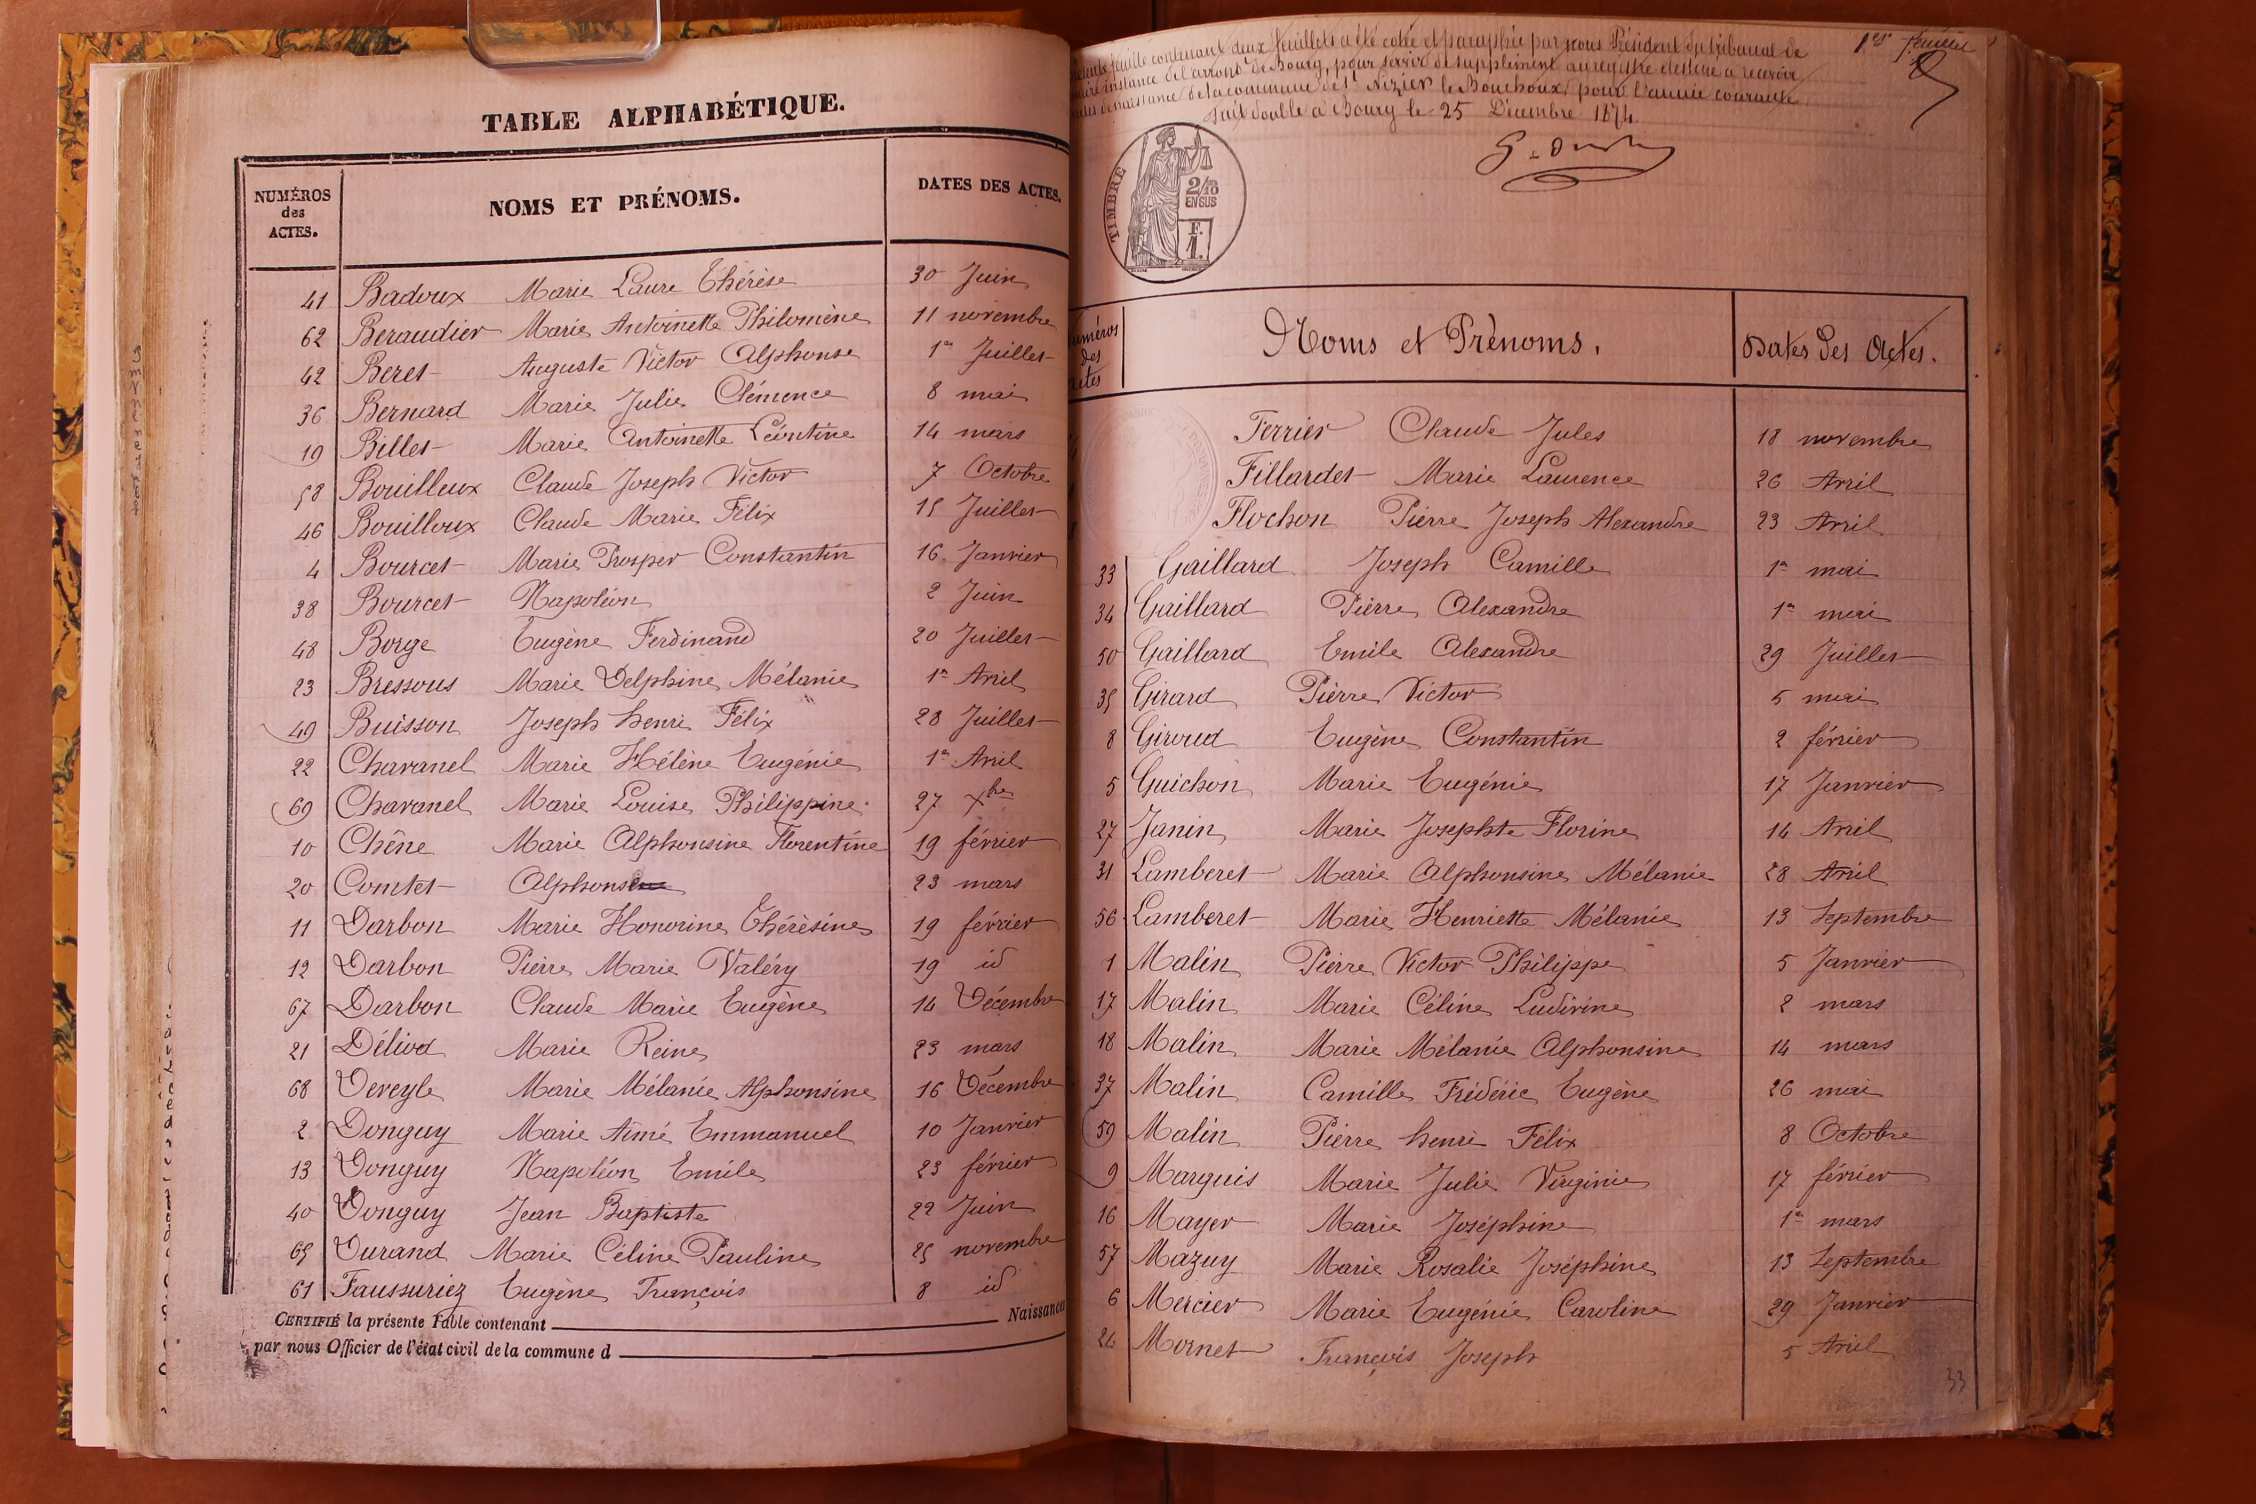 TABLE ALPHABÉTIQUE.
NUMÉROS des ACTES. NOMS ET PRÉNOMS. DATES DES ACTES.
41 Badoux Marie Laure Thérèse 30 Juin
62 Beraudier Marie Antoinette Philomène 11 novembre
42 Beret Auguste Victor Alphonse 1er Juillet
36 Bernard Marie Julie Clémence 8 mai
19 Billet Marie Antoinette Léontine 14 mars
58 Bouilleux Claude Joseph Victor 7 Octobre
46 Bouilloux Claude Marie Félix 15 Juillet
4 Bourcet Marie Prosper Constantin 16 Janvier
38 Bourcet Napoléon 2 Juin
48 Borge Eugène Ferdinand 20 Juillet
23 Bressous Marie Delphine Mélanie 1er Avril
49 Buisson Joseph henri Félix 28 Juillet
22 Chavanel Marie Hélène Eugénie 1er Avril
69 Chavanel Marie Louise Philippine 27 Xbre
10 Chêne Marie Alphonsine Florentine 19 février
20 Comtet Alphonse 23 mars
11 Darbon Marie Honorine Thérèsine 19 février
12 Darbon Pierre Marie Valéry 19 id
67 Darbon Claude Marie Eugène 14 Décembre
21 Déliod Marie Reine 23 mars
68 Deveyle Marie Mélanie Alphonsine 16 Décembre
2 Donguy Marie Aimé Emmanuel 10 Janvier
13 Donguy Napoléon Emile 23 février
40 Donguy Jean Baptiste 22 Juin
65 Durand Marie Céline Pauline 25 novembre
61 Faussuriez Eugène François 8 id
CERTIFIÉ la présente Table contenant Naissances
par nous Officier de l'état civil de la commune d
feuille contenant deux feuillets a été cotée et paraphée par nous Président du tribunal de
instance de l'arront de Bourg, pour servir de supplément au registre destiné à recevoir
naissance de la commune de St Nizier le Bouchoux, pour l'année courante
Fait double à Bourg le 25 Décembre 1874
1er feuillet
TIMBRE
2/10
EN SUS
F.
1.
Numéros des actes Noms et Prénoms. Dates des Actes.
Ferrier Claude Jules 18 novembre
Fillardet Marie Laurence 26 Avril
Flochon Pierre Joseph Alexandre 23 Avril
33 Gaillard Joseph Camille 1er mai
34 Gaillard Pierre Alexandre 1er mai
50 Gaillard Emile Alexandre 29 Juillet
35 Girard Pierre Victor 5 mai
8 Giroud Eugène Constantin 2 février
5 Guichon Marie Eugénie 17 Janvier
27 Janin Marie Josephte Florine 14 Avril
31 Lamberet Marie Alphonsine Mélanie 28 Avril
56 Lamberet Marie Henriette Mélanie 13 Septembre
1 Malin Pierre Victor Philippe 5 Janvier
17 Malin Marie Céline Ludivine 2 mars
18 Malin Marie Mélanie Alphonsine 14 mars
37 Malin Camille Frédéric Eugène 26 mai
59 Malin Pierre henri Félix 8 Octobre
9 Marguis Marie Julie Virginie 17 février
16 Mayer Marie Joséphine 1er mars
57 Mazuy Marie Rosalie Joséphine 13 Septembre
6 Mercier Marie Eugénie Caroline 29 Janvier
24 Mornet François Joseph 5 Avril
33